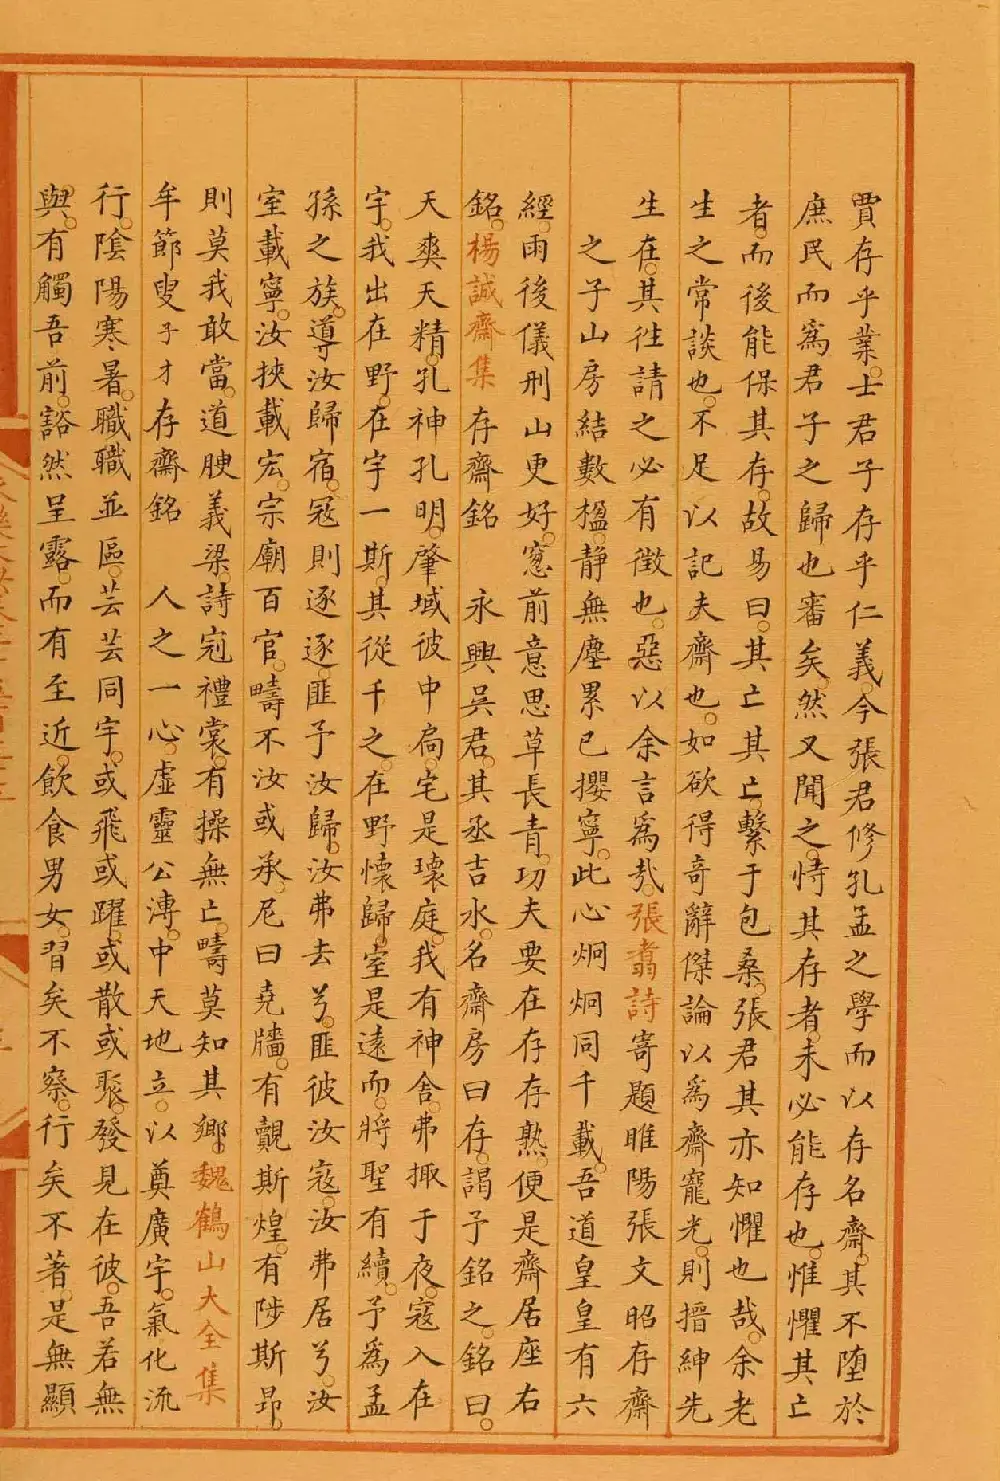 賈存乎業。士君子存乎仁義。今張君修孔孟之學而以存名齋。其不墮於
庶民而為君子之歸也審矣。然又聞之。恃其存者。未必能存也。惟懼其亡
者。而後能保其存。故易曰。其亡其亡。繫于包桑。張君其亦知懼也哉。余老
生之常談也。不足以記夫齋也。如欲得奇辭傑論以為齋寵光。則搢紳先
生在。其徃請之必有徵也。惡以余言為㢤。張翥詩寄題睢陽張文昭存齋
之子山房結數楹。静無塵累已攖寧。此心炯炯同千載。吾道皇皇有六
經。雨後儀刑山更好。窓前意思草長青。功夫要在存存熟。便是齋居座右
銘。楊誠齋集存齋銘 永興吳君。其丞吉水。名齋房曰存。謁予銘之。銘曰。
天奭天精。孔神孔明。肇域彼中扃。宅是瓌庭。我有神舍。弗掫于夜。寇入在
宇。我出在野。在宇一斯。其從千之。在野懷歸。室是逺而。將聖有續。予為孟
孫之族。導汝歸宿。寇則逐逐。匪予汝歸。汝弗去兮。匪彼汝寇。汝弗居兮。汝
室載寧。汝挾載宏。宗廟百官。疇不汝或承。尼曰堯牆。有覿斯煌。有陟斯昂。
則莫我敢當。道腴義梁。詩冠禮裳。有操無亡。疇莫知其鄉。魏鶴山大全集
牟節叟子才存齋銘 人之一心。虛靈公溥。中天地立。以奠廣宇。氣化流
行。陰陽寒暑。職職並區。芸芸同宇。或飛或躍。或散或聚。發見在彼。吾若無
與。有觸吾前。豁然呈露。而有至近。飲食男女。習矣不察。行矣不著。是無顯